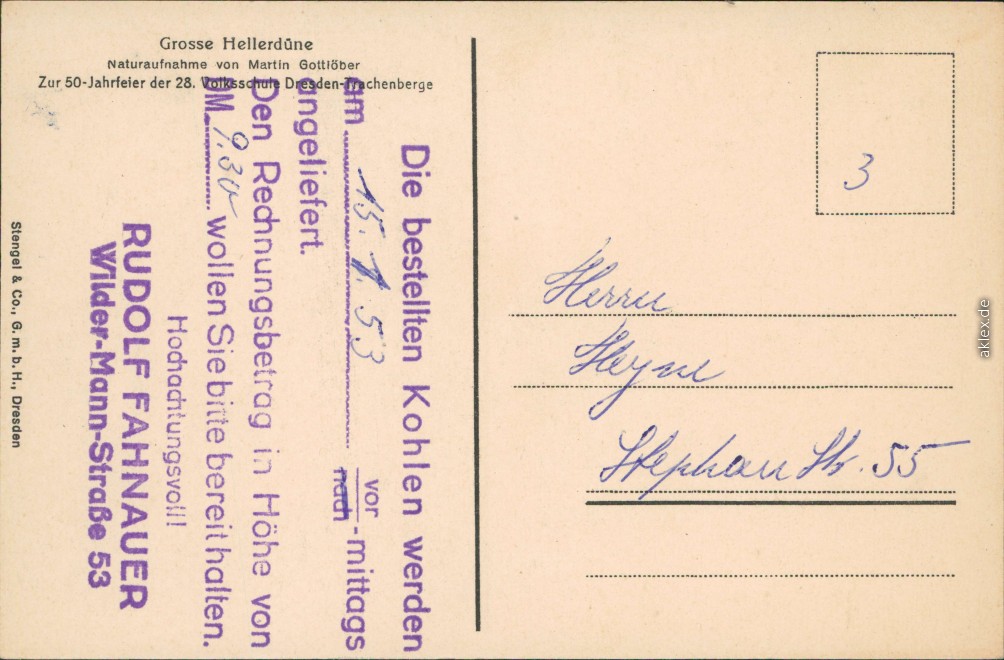 Grosse Hellerdüne
Naturaufnahme von Martin Gottlöber
Zur 50-Jahrfeier der 28. Volksschule Dresden-Trachenberge
Die bestellten Kohlen werden
am 15. 1. 53 vor
nach -mittags
angeliefert.
Den Rechnungsbetrag in Höhe von
DM 9.30 wollen Sie bitte bereithalten.
Hochachtungsvoll!
RUDOLF FAHNAUER
Wilder-Mann-Straße 53
Stengel & Co., G. m. b. H., Dresden
3
Herrn
Heyne
Stephan Str. 55
aklex.de